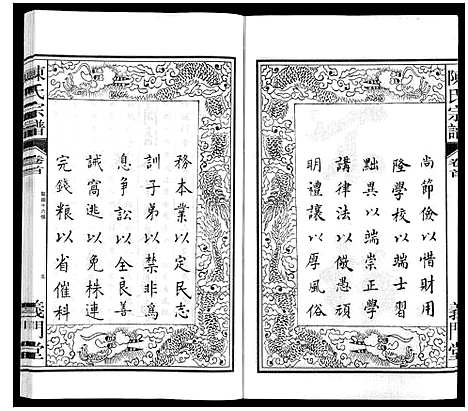 陳氏宗譜
卷首
義門堂
尚節儉以惜財用
隆學校以端士習
黜異以端崇正學
講律法以儆愚頑
明禮讓以厚風俗
務本業以定民志
訓子弟以禁非為
息爭訟以全良善
誡窩逃以免株連
完錢糧以省催科
陳氏宗譜
卷首
義門堂